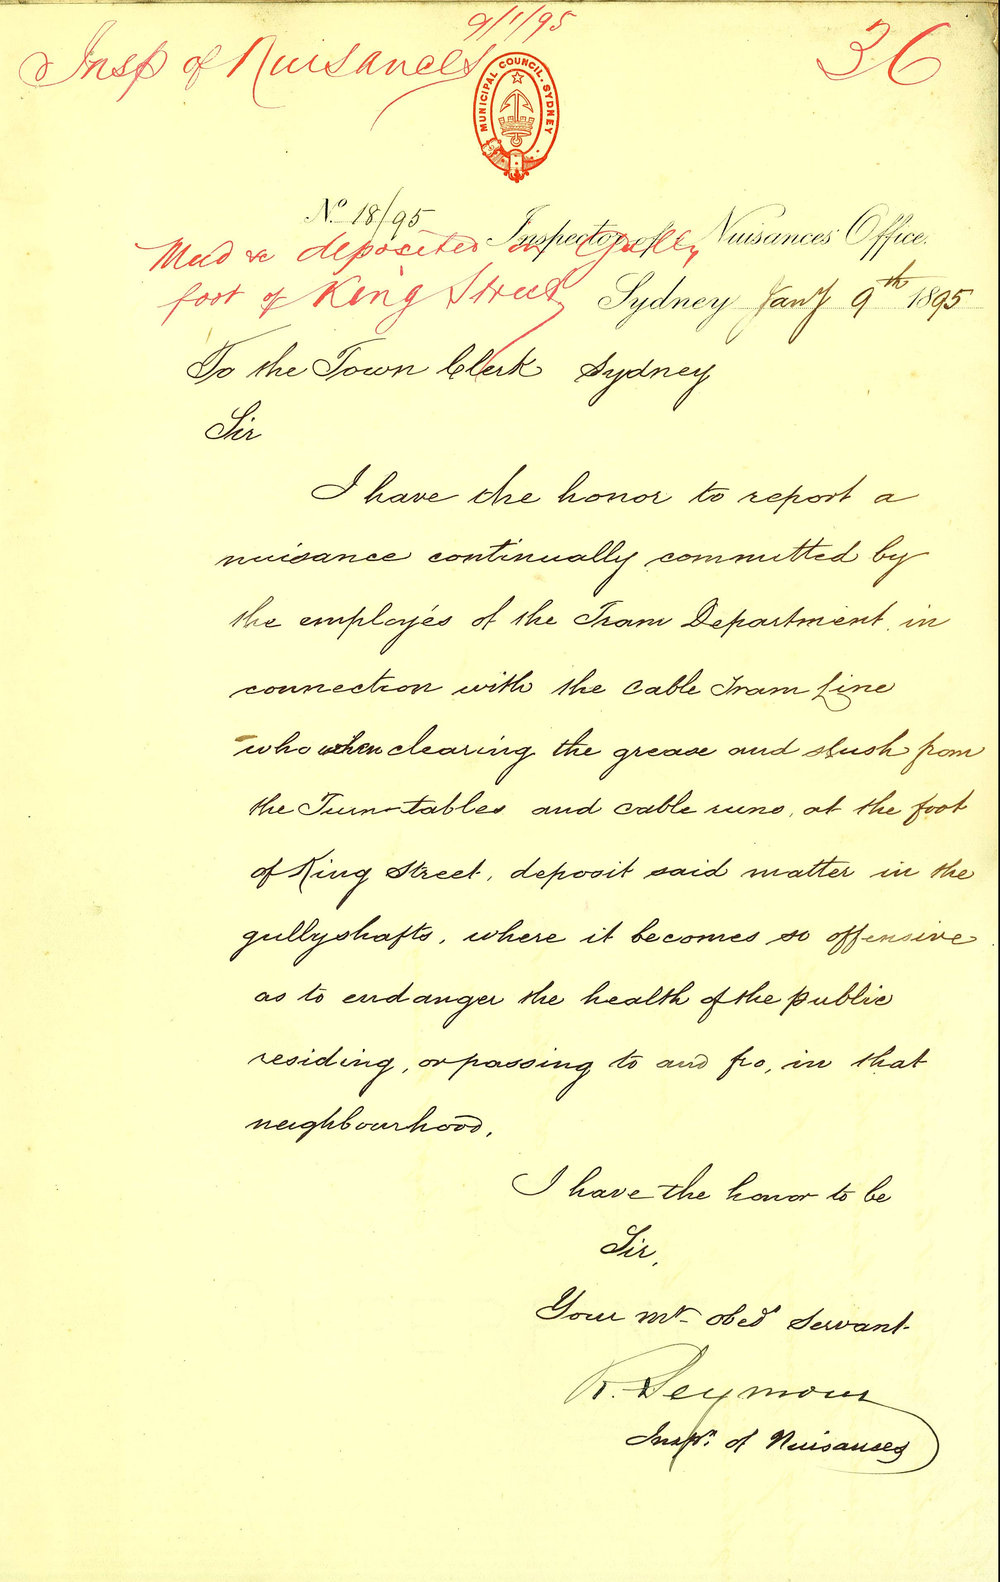 9/1/95
Insp of Nuisances
36
MUNICIPAL COUNCIL. SYDNEY
No. 18/95
Inspector of Nuisances Office.
Mud &c deposited in Gulley
foot of King Street
Sydney Jany 9th 1895
To the Town Clerk Sydney
Sir
I have the honor to report a
nuisance continually committed by
the employés of the Tram Department in
connection with the Cable Tram Line
who when clearing the grease and slush from
the Turn-tables and cable runs, at the foot
of King Street, deposit said matter in the
gullyshafts, where it becomes so offensive
as to endanger the health of the public
residing, or passing to and fro, in that
neighbourhood.
I have the honor to be
Sir,
Your mt obed servant
R. Seymour
Inspr. of Nuisances